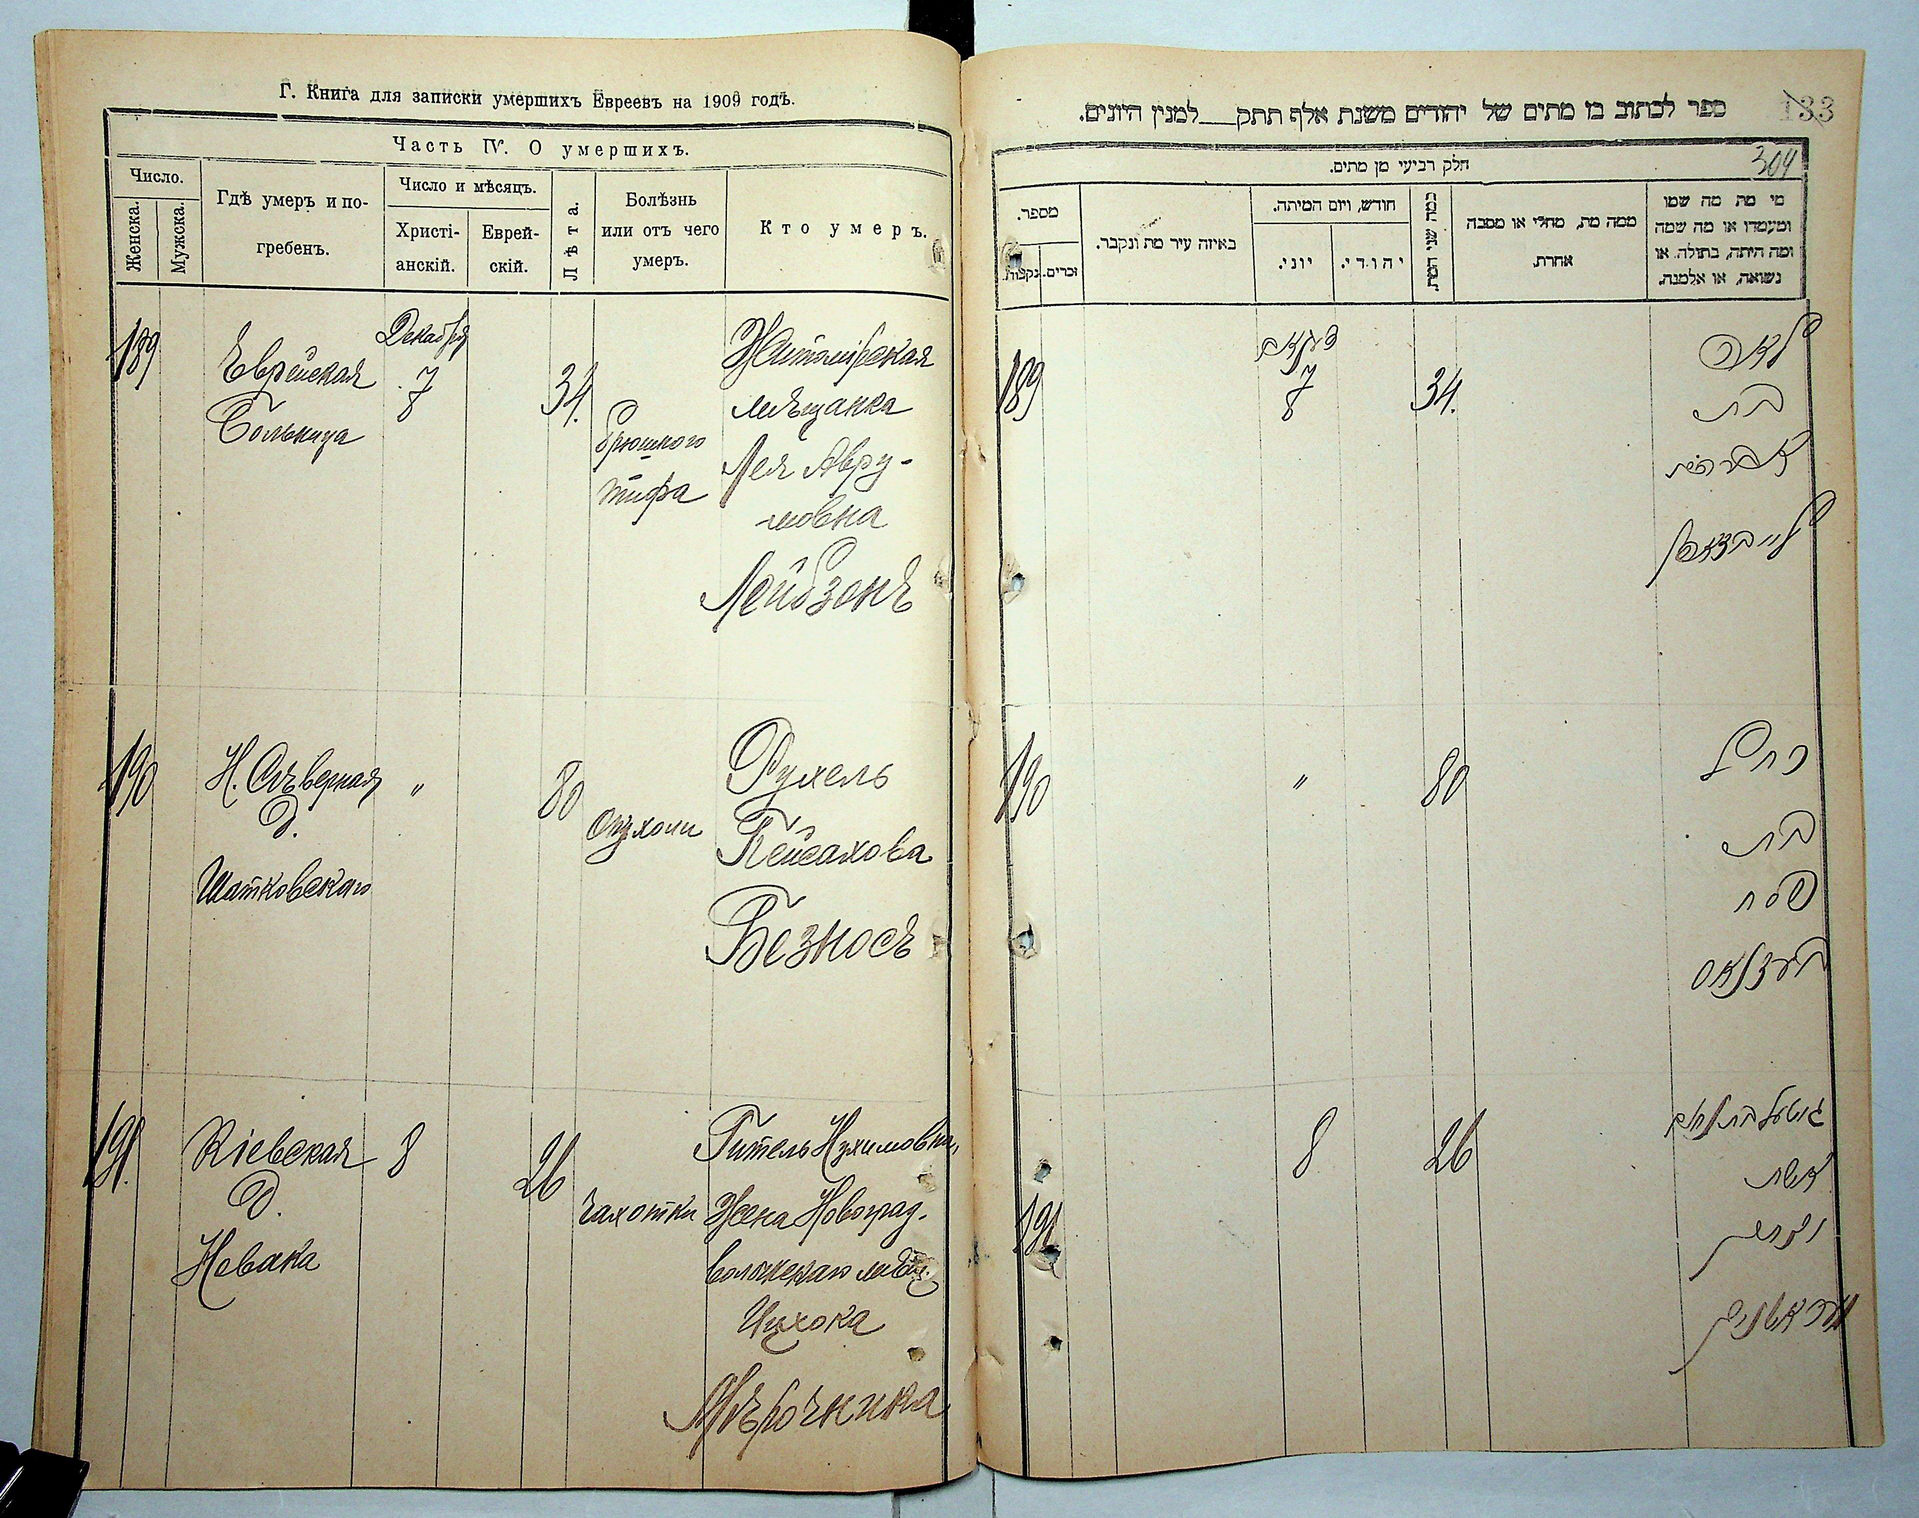 Г. Книга для записки умершихъ Евреевъ на 1909 годъ.
Часть IV. О умершихъ.
Число.
Женска.
Мужска.
Гдѣ умеръ и по-
гребенъ.
Число и мѣсяцъ.
Христі-
анскій.
Еврей-
скій.
Лѣта.
Болѣзнь
или отъ чего
умеръ.
Кто умеръ.
189
Еврейская
Больница
Декабря
7
8
34.
брюшного
тифа
Житомірская
мѣщанка
Лея Авру-
мовна
Лейбзонъ
190
Н. Сѣверная
д.
Шатковского
"
80
опухоли
Рухель
Пейсахова
Безносъ
191.
Кіевская
д.
Невака
8
26
чахотки
Гитель Нухимовна,
Жена Новоград.
волынскаго мѣщ.
Ицхока
Мѣрочника
ספר לכתוב בו מתים של יהודים משנת אלף תתק___למנין היונים.
133
304
חלק רביעי מן מתים.
מספר.
נקבות.
זכרים.
באיזה עיר מת ונקבר.
חודש, ויום המיתה.
יוני.
יהודי.
כמה שני המת.
ממה מת, מחלי או מסבה
אחרת.
מי מת מה שמו
ומעמדו או מה שמה
ומה היתה, בתולה או
נשואה, או אלמנה.
189
דעקאב
7
8
34.
לאה
בת
אברהם
לייבזאהן
190
"
80
רחל
בת
פסח
בעזנאס
191
8
26
גיטל בת נחום
אשת
יצחק